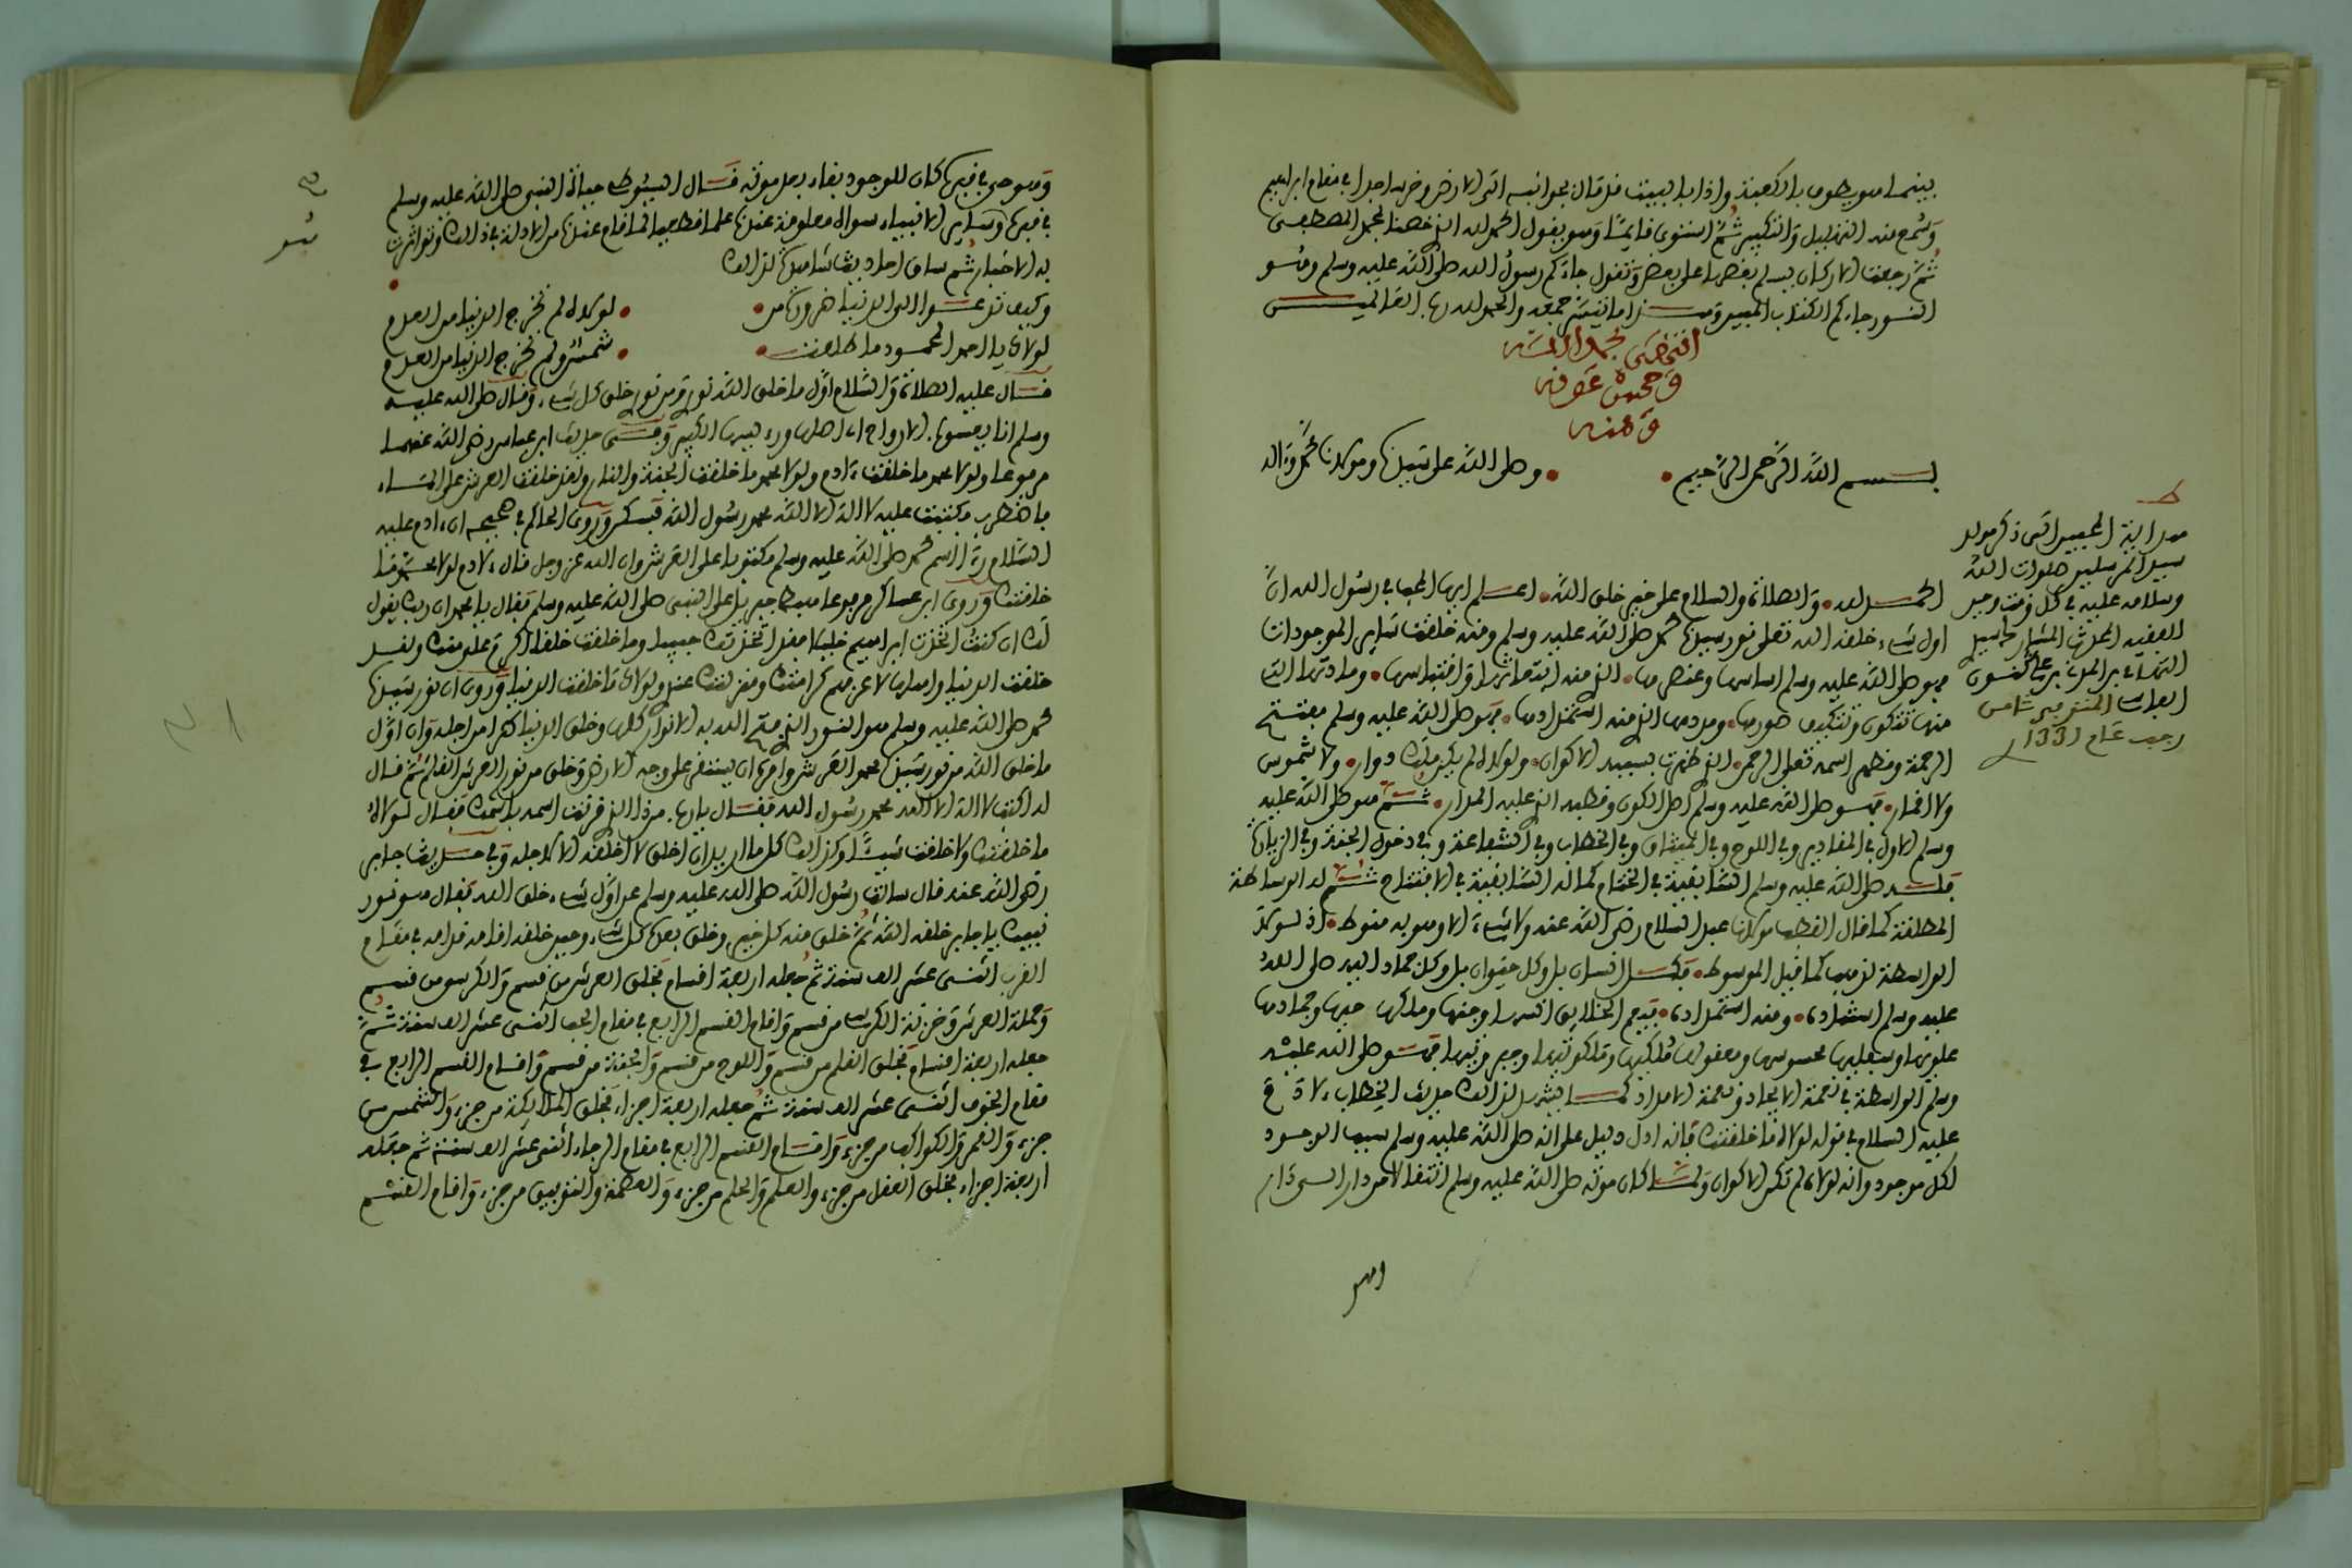 بينما هو يطوف بالكعبة واذا بالبيت قد قال بجوانبه الى الارض وخر ساجدا في مقام ابراهيم
وسمع منه التهليل والتكبير ثم استوى قايما وهو يقول الحمد لله الذي خصنا بمحمد المصطفى
ثم رجعت الاركان يسلم بعضها على بعض وتقول جاءكم رسول الله صلى الله عليه وسلم وهو
النور جاءكم الكتاب المبين وهذا ما تيسر جمعه والحمد لله رب العالمين
انتهى بحمد الله
وحسن عونه
ومنه
بسم الله الرحمن الرحيم وصلى الله على سيدنا ومولانا محمد وءاله
هداية المحبين الى ذكر مولد
سيد المرسلين صلوات الله
وسلامه عليه في كل وقت وحين
الفقيه المحدث
التهامي بن المدني بن علي كنون
المتوفى خامس
رجب عام 1331
الحمد لله والصلاة والسلام على خير خلق الله اعلم ايها المحب في رسول الله ان
اول شيء خلقه الله تعلى نور سيدنا محمد صلى الله عليه وسلم ومنه خلقت ساير الموجودات
فهو صلى الله عليه وسلم اساسها وعنصرها الذي منه ابتداؤها واقتباسها ومادتها التي
منها تتكون وتتكيف صورها ومددها الذي منه استمدادها فهو صلى الله عليه وسلم مفتتح
الرحمة ومظهر اسمه تعلى الرحمن الذي ظهرت بسببه الاكوان ولولاه لم يكن فلك دوار ولا شموس
ولا اقمار فهو صلى الله عليه وسلم اصل الكون وقطبه الذي عليه المدار ثم هو صلى الله عليه
وسلم الاول في المقادير وفي اللوح وفي الميثاق وفي الخطاب وفي الشفاعة وفي دخول الجنة وفي الزيارة
فله صلى الله عليه وسلم السابقية في الختام كما له السابقية في الافتتاح ثم له الوساطة
المطلقة كما قال القطب مولانا عبد السلام رضي الله عنه ولا شيء الا وهو به منوط اذ لولا
الواسطة لذهب كما قيل الموسوط فكل انسان بل وكل حيوان بل وكل جماد اليه صلى الله
عليه وسلم استناده ومنه استمداده فيرحم الخلايق انسها وجنها وملكها حيها وجمادها
علويها وسفليها محسوسها ومعقولها ملكيها وملكوتيها وجبروتيها فهو صلى الله عليه
وسلم الواسطة في نعمة الايجاد ونعمة الامداد كما يشهد لذلك حديث الخطاب لادم
عليه السلام في قوله لولاه ما خلقتك فانه ادل دليل على انه صلى الله عليه وسلم سبب الوجود
لكل موجود وانه لولاه لم تكن الاكوان ولما كان موته صلى الله عليه وسلم انتقالا من دار الى دار
وهو حي في قبره كان للوجود بقاء بعد موته قال السيوطي حياة النبي صلى الله عليه وسلم
في قبره وساير الانبياء سواه معلومة عندنا علما قطعيا لما قام عندنا من الادلة في ذلك وتواترت
به الاخبار ثم ساق احاديث شاهدة لذلك
وكيف تدعوا الى الدنيا ضرورة من لولاه لم تخرج الدنيا من العدم
لولاك يا احمد المحمود ما طلعت شمس ولم تخرج الدنيا من العدم
قال عليه الصلاة والسلام اول ما خلق الله نوري ومن نوري خلق كل شيء وقال صلى الله عليه
وسلم انا يعسوب الارواح اي اصلها وفي حديث ابن عباس رضي الله عنهما
مرفوعا ولولا محمد ما خلقت ءادم ولولا محمد ما خلقت الجنة والنار ولقد خلقت العرش على الماء
فاضطرب فكتبت عليه لا اله الا الله محمد رسول الله فسكن وروى الحاكم في صحيحه ان ءادم عليه
السلام رءا اسم محمد صلى الله عليه وسلم مكتوبا على العرش وان الله عز وجل قال لادم لولا محمد ما
خلقتك وروى ابن عساكر مرفوعا هبط جبريل على النبي صلى الله عليه وسلم فقال يا محمد ان ربك يقول
لك ان كنت اتخذت ابراهيم خليلا فقد اتخذتك حبيبا وما خلقت خلقا اكرم علي منك ولقد
خلقت الدنيا واهلها لاعرفهم كرامتك ومنزلتك عندي ولولاك ما خلقت الدنيا وروى ان نور سيدنا
محمد صلى الله عليه وسلم هو النور الذي فتح الله به الانوار كلها وخلق الدنيا كلها من اجله وان اول
ما خلق الله من نور سيدنا محمد العرش وامره ان يستقر على وجه الارض وخلق من نور العرش القلم ثم قال
له اكتب لا اله الا الله محمد رسول الله فقال يا رب من ذا الذي قرنت اسمه باسمك فقال لولاه
ما خلقتك ولا خلقت شيئا وكذلك كل ما اريد ان اخلق لا اخلقه الا لاجله وفي حديث جابر
رضي الله عنه قال سالت رسول الله صلى الله عليه وسلم عن اول شيء خلق الله فقال هو نور
نبيك يا جابر خلقه الله ثم خلق منه كل خير وخلق بعده كل شيء وحين خلقه اقامه قدامه في مقام
القرب اثنى عشر الف سنة ثم جعله اربعة اقسام فخلق العرش من قسم والكرسي من قسم
وحملة العرش وخزنة الكرسي من قسم واقام القسم الرابع في مقام الحب اثنى عشر الف سنة ثم
جعله اربعة اقسام فخلق القلم من قسم واللوح من قسم والجنة من قسم واقام القسم الرابع في
مقام الخوف اثنى عشر الف سنة ثم جعله اربعة اجزاء فخلق الملايكة من جزء والشمس من
جزء والقمر والكواكب من جزء واقام القسم الرابع في مقام الرجاء اثنى عشر الف سنة ثم جعله
اربعة اجزاء فخلق العقل من جزء والعلم والحلم من جزء والعصمة والتوفيق من جزء واقام القسم